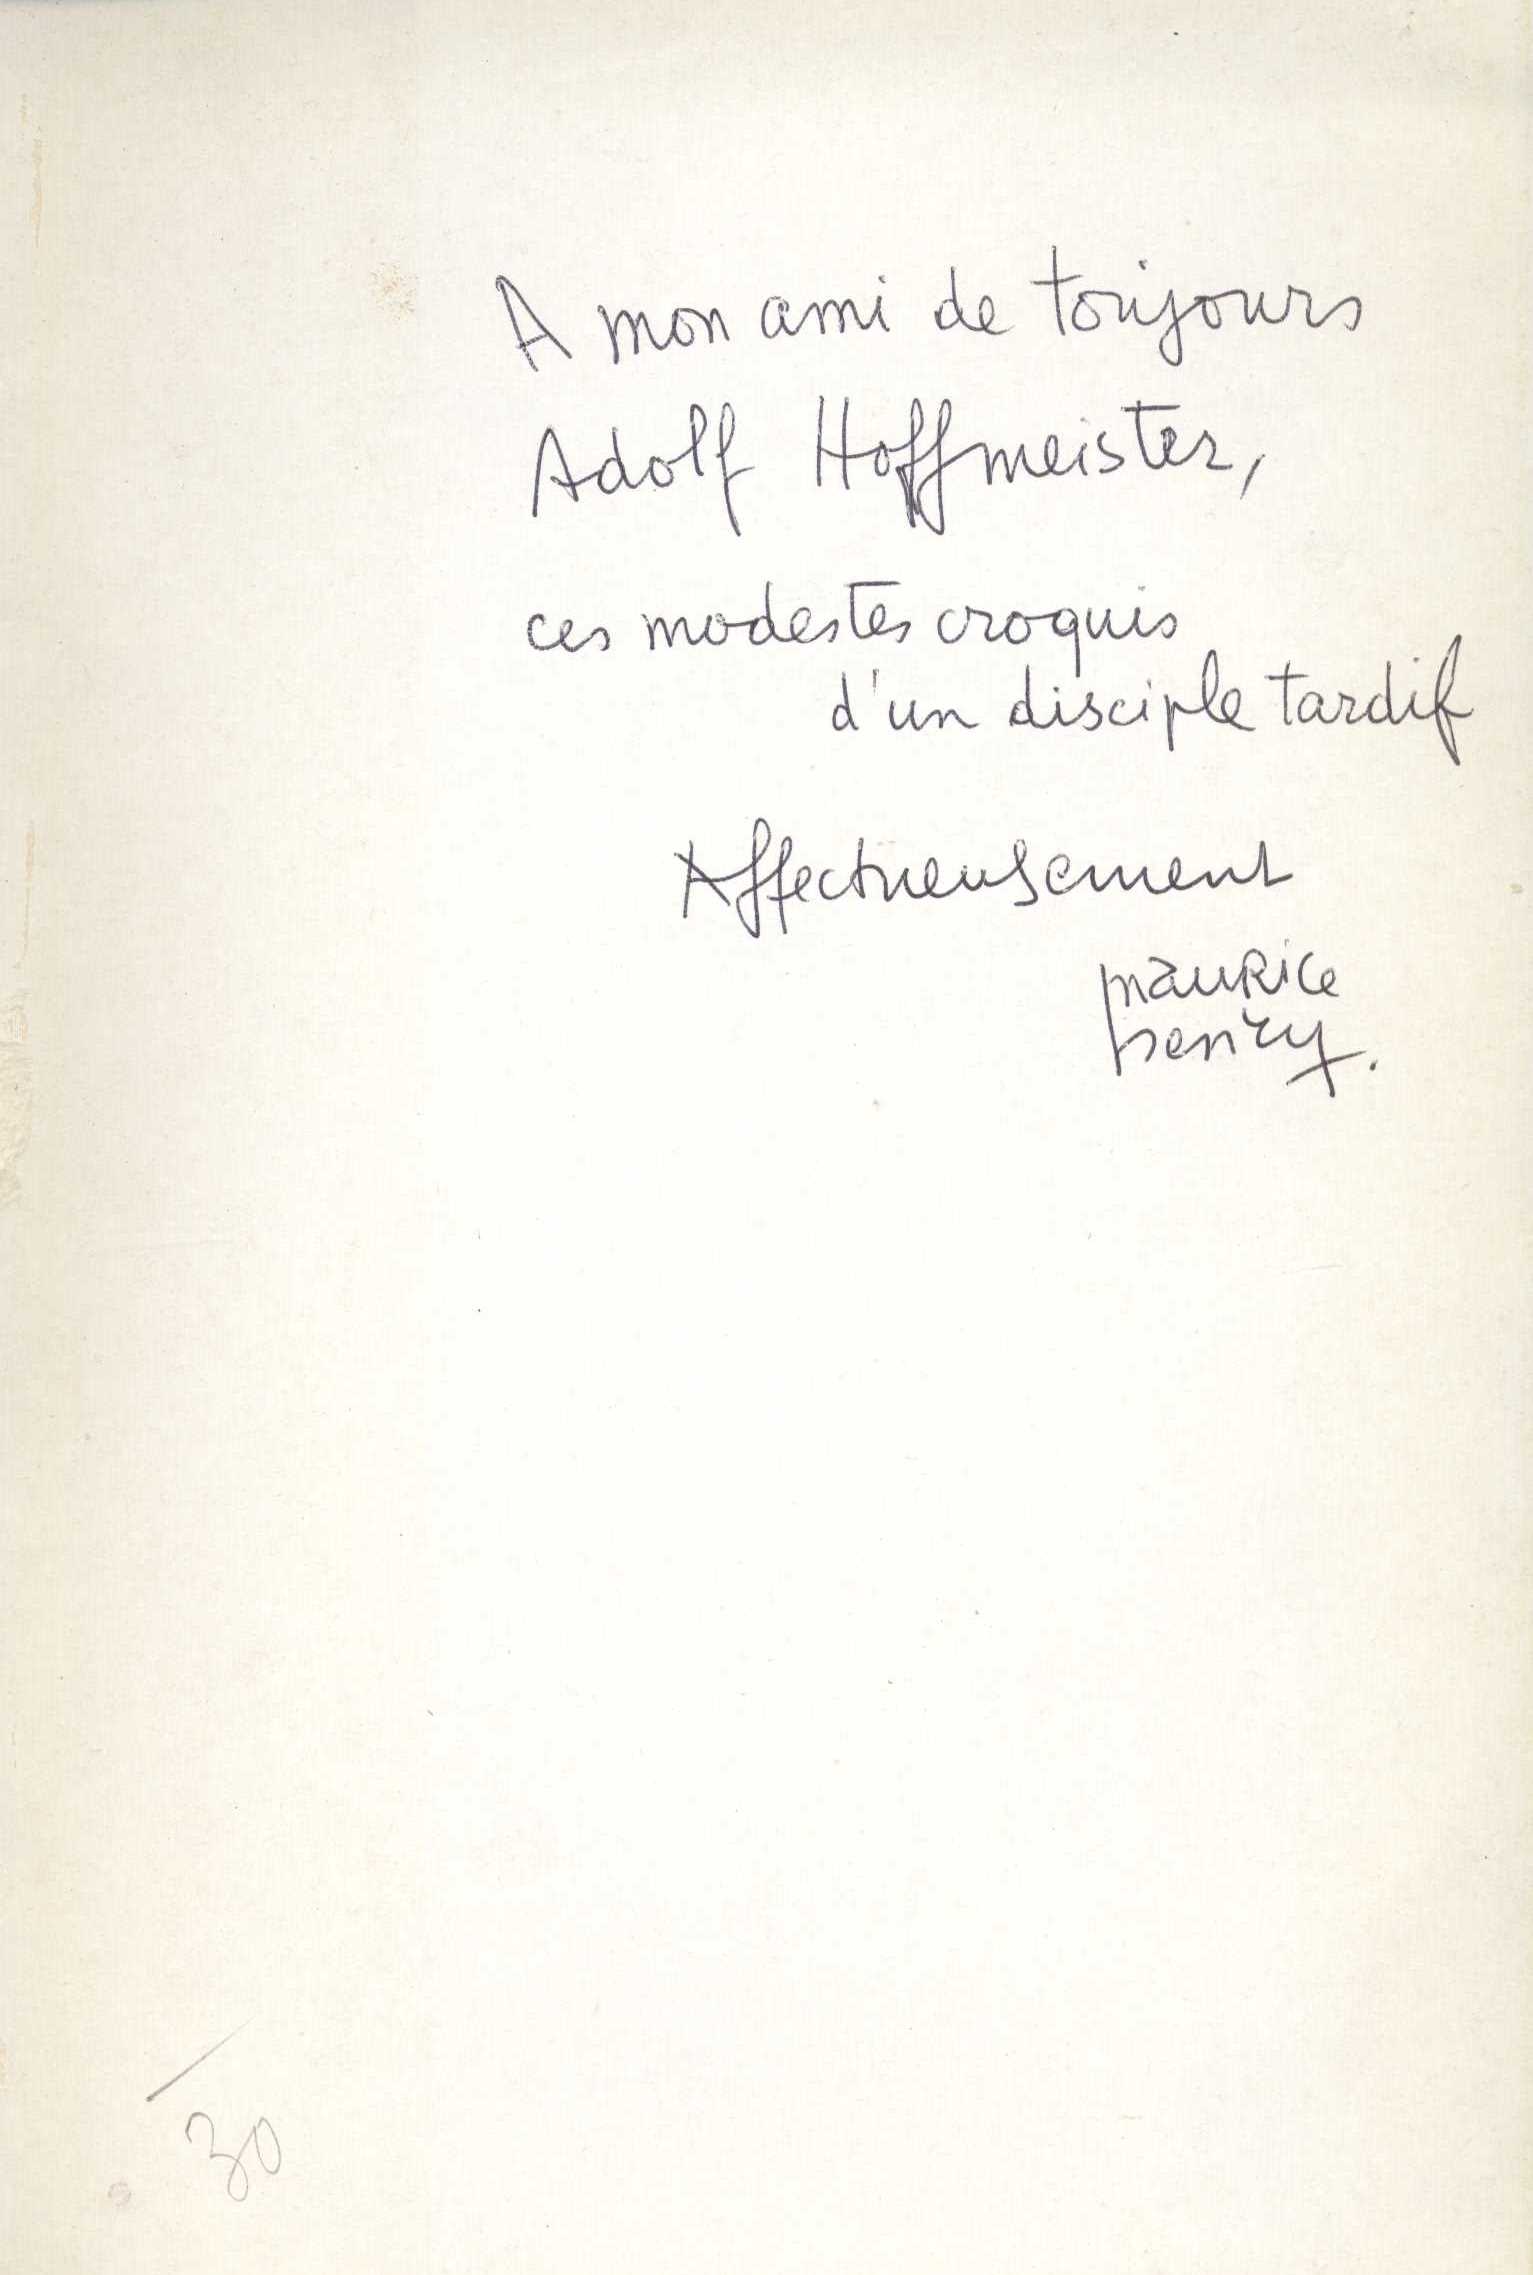 A mon ami de toujours
Adolf Hoffmeister,
ces modestes croquis
d'un disciple tardif
Affectueusement
maurice
henry.
30